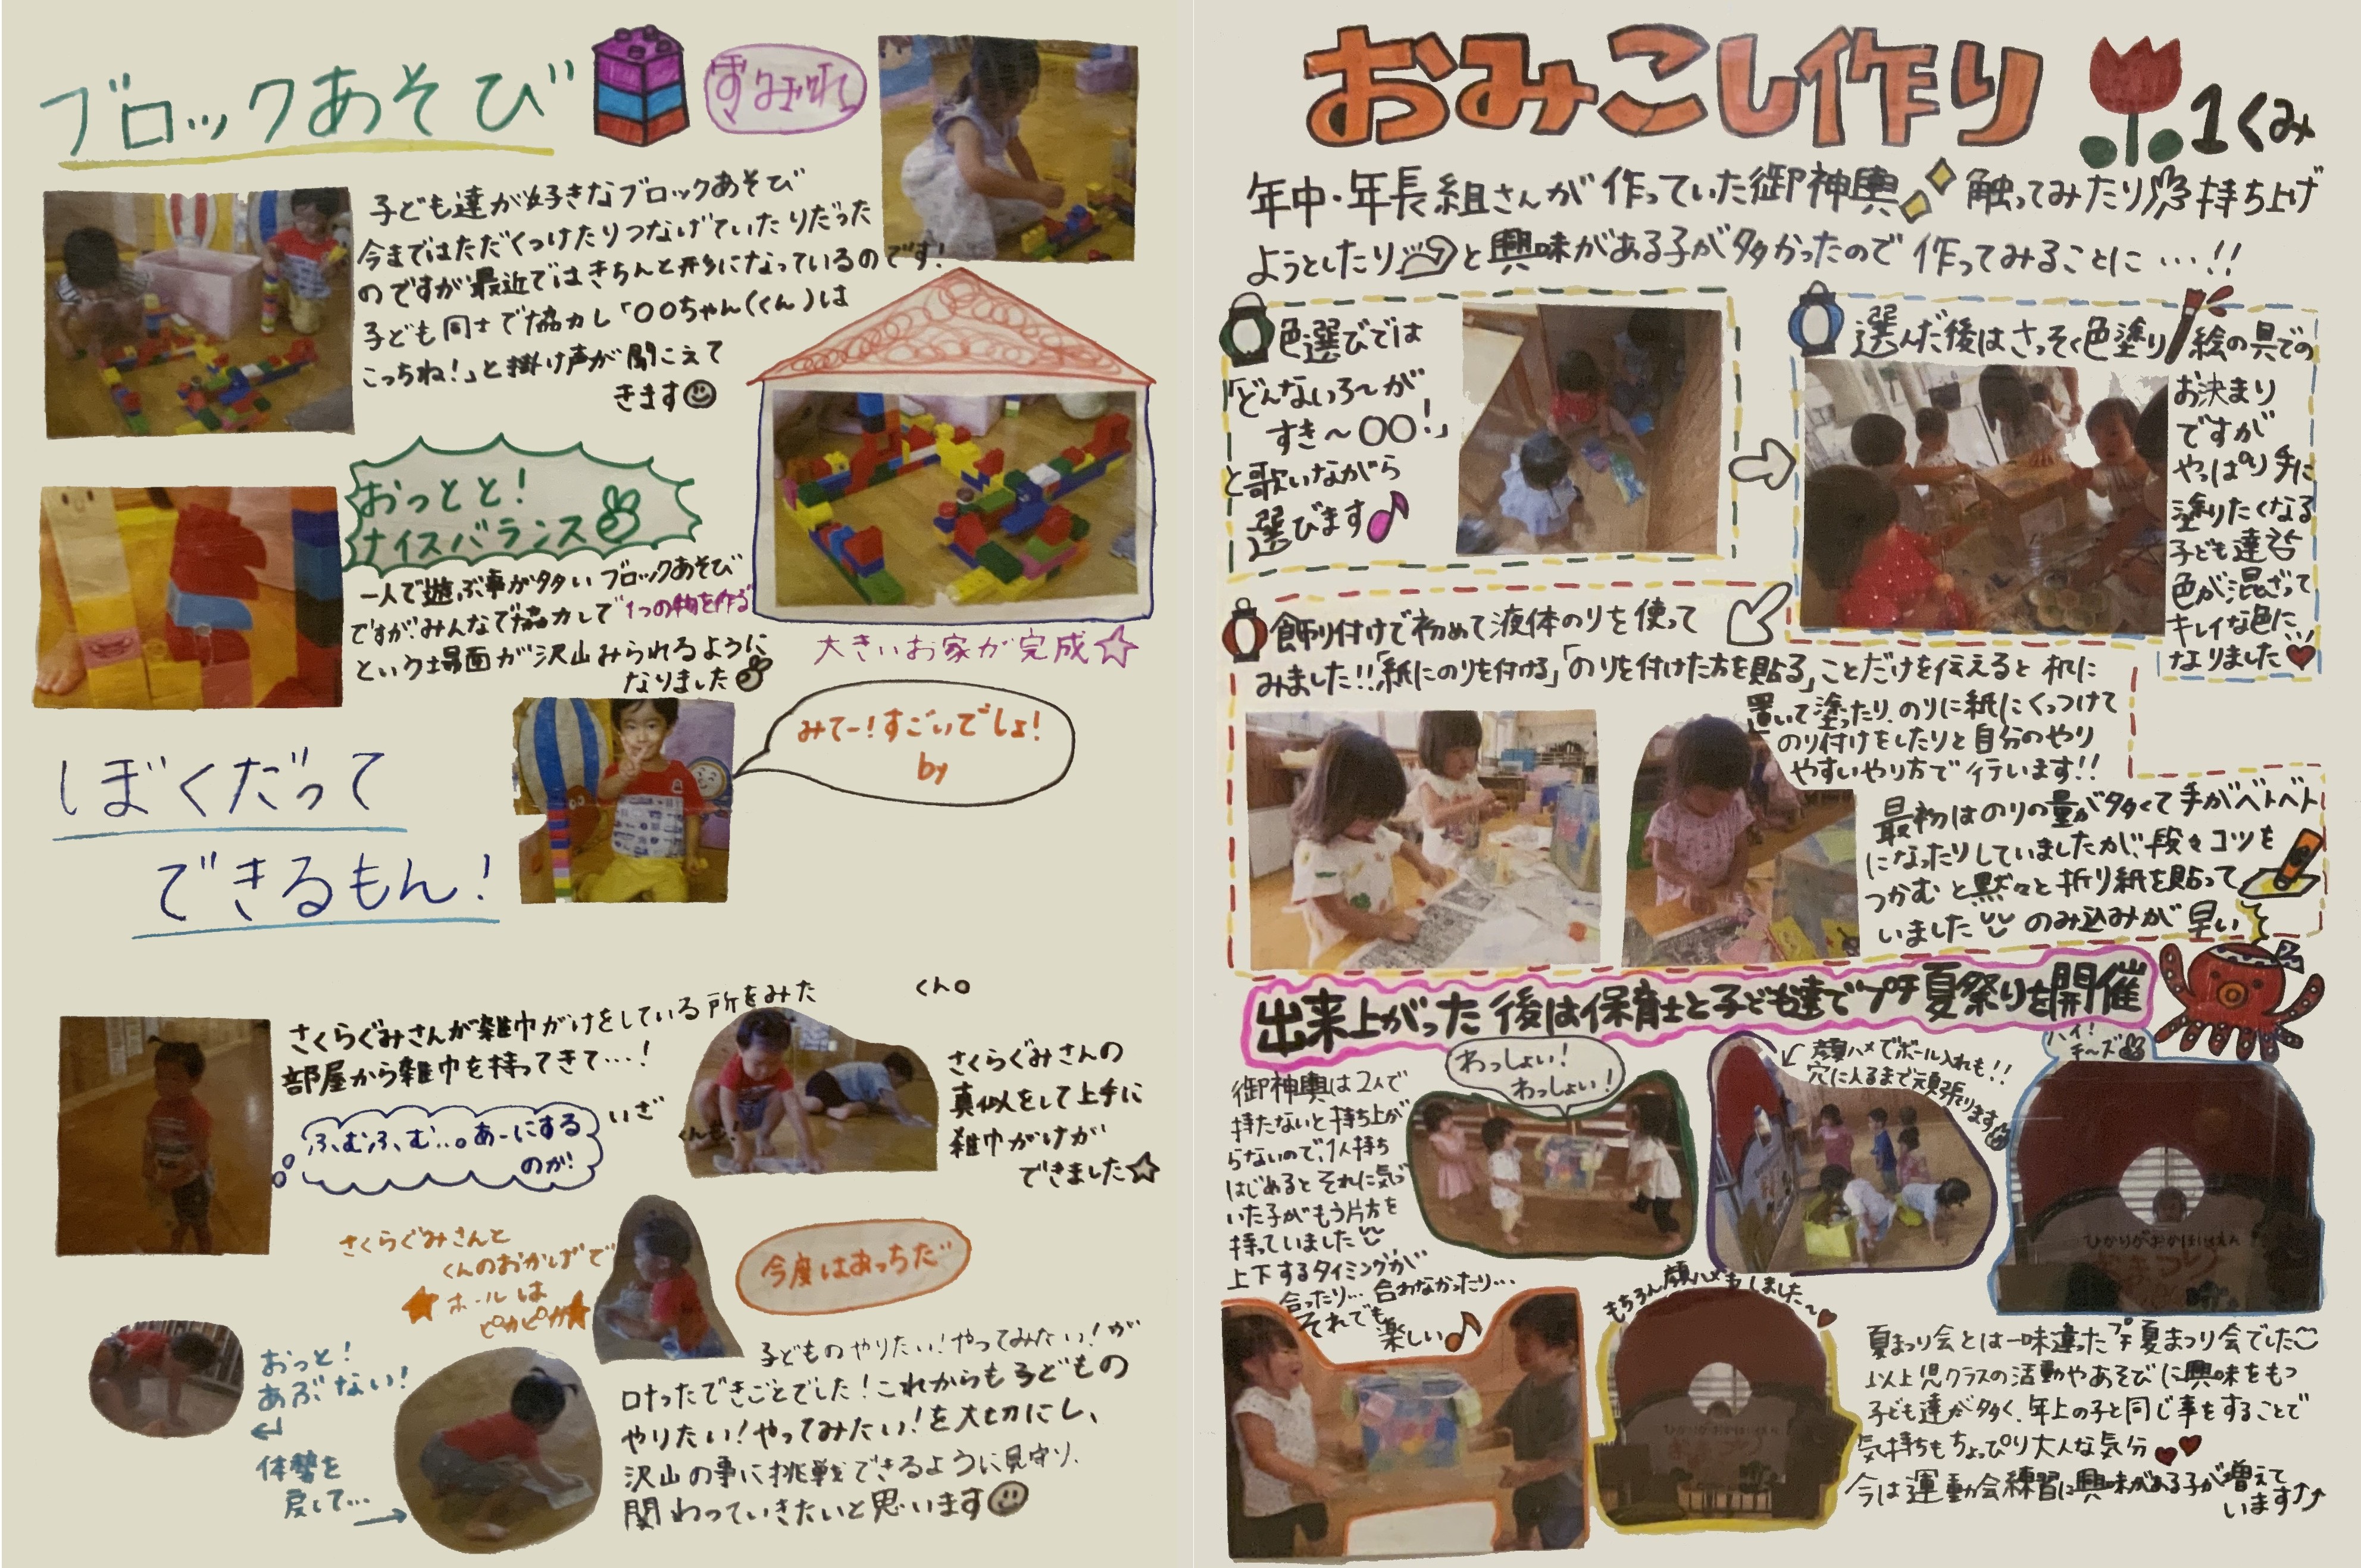 ブロックあそび
すみれ
子ども達が好きなブロックあそび
今まではただくっつけたりつなげていたりだった
のですが最近ではきちんと形になっているのです!
子ども同士で協力し「〇〇ちゃん(くん)は
こっちね!」と掛け声が聞こえて
きます
おっとと!
ナイスバランス
一人で遊ぶ事が多いブロックあそび
ですがみんなで協力して"1つの物を作る"
という場面が沢山みられるように
なりました
大きいお家が完成☆
みてー!すごいでしょ!
by
ぼくだって
できるもん!
さくらぐみさんが雑巾がけをしている所をみた
くん。
部屋から雑巾を持ってきて…!
いざ
ふむふむ…。あーにする
のか!
くんも!
さくらぐみさんの
真似をして上手に
雑巾がけが
できました☆
さくらぐみさんと
くんのおかげで
ホールは
ピカピカ
今度はあっちだ
おっと!
あぶない!
←
体勢を
戻して…
→
子どものやりたい!やってみたい!が
叶ったできごとでした!これからも子どもの
やりたい!やってみたい!を大切にし、
沢山の事に挑戦できるように見守り、
関わっていきたいと思います
おみこし作り
1くみ
年中・年長組さんが作っていた御神輿 触ってみたり 持ち上げ
ようとしたり と興味がある子が多かったので 作ってみることに…!!
色選びでは
「どんないろ〜が
すき〜〇〇!」
と歌いながら
選びます♪
選んだ後はさっそく色塗り 絵の具での
お決まり
ですが
やっぱり手に
塗りたくなる
子ども達
色が混ざって
キレイな色に
なりました♥
飾り付けで初めて液体のりを使って
みました!!「紙にのりを付ける」「のりを付けた方を貼る」ことだけを伝えると 机に
置いて塗ったり、のりに紙にくっつけて
のり付けをしたりと自分のやり
やすいやり方で行います!!
最初はのりの量が多くて手がベトベト
になったりしていましたが、段々コツを
つかむと黙々と折り紙を貼って
いました のみ込みが早い
出来上がった後は保育士と子ども達でプチ夏祭りを開催
御神輿は2人で
持たないと持ち上が
らないので、1人持ち
はじめるとそれに気づ
いた子がもう片方を
持っていました
上下するタイミングが
合ったり…合わなかったり…
それでも
楽しい♪
わっしょい!
わっしょい!
顔ハメでボール入れも!!
穴に入るまで頑張ります
ハイ!
チーズ
ひかりがおかほいくえん
もちろん顔ハメもしました〜♥
夏まつり会とは一味違ったプチ夏まつり会でした
以上児クラスの活動やあそびに興味をもつ
子ども達が多く、年上の子と同じ事をすることで
気持ちもちょっぴり大人な気分♥♥
今は運動会練習に興味がある子が増えて
います↑↑